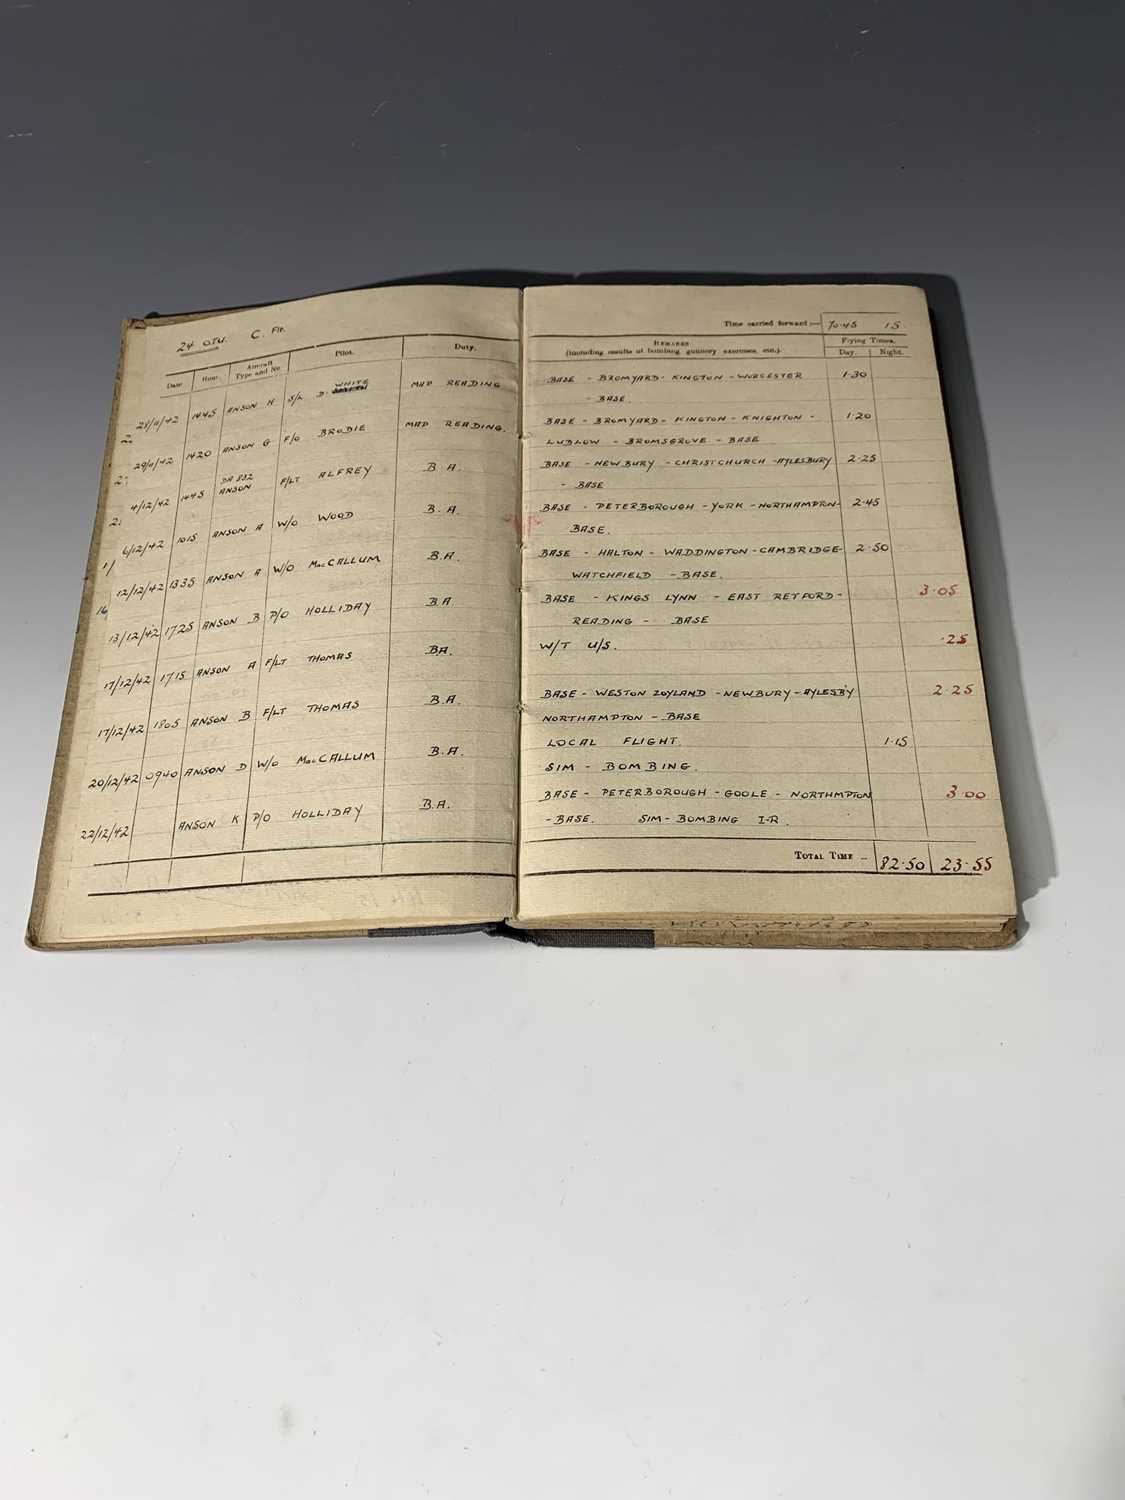 24 OTU. C. Flt.
Time carried forward :— 70.45 15.
Date. Hour. Aircraft Type and No. Pilot. Duty. REMARKS (including results of bombing, gunnery exercises, etc.). Flying Times. Day. Night.
28/11/42 1445 ANSON H S/L D. WHITE MAP READING BASE - BROMYARD - KINGTON - WORCESTER 1.30
- BASE.
29/11/42 1420 ANSON G F/O BRODIE MAP READING. BASE - BROMYARD - KINGTON - KNIGHTON - 1.20
LUDLOW - BROMSGROVE - BASE
4/12/42 1445 DA 832 ANSON F/LT ALFREY B.A. BASE - NEWBURY - CHRISTCHURCH - AYLESBURY 2.25
- BASE
6/12/42 1015 ANSON A W/O WOOD B.A. BASE - PETERBOROUGH - YORK - NORTHAMPTON- 2.45
BASE.
12/12/42 1335 ANSON A W/O MacCALLUM B.A. BASE - HALTON - WADDINGTON - CAMBRIDGE- 2.50
WATCHFIELD - BASE.
13/12/42 1725 ANSON B P/O HOLLIDAY B.A BASE - KINGS LYNN - EAST RETFORD - 3.05
READING - BASE
17/12/42 1715 ANSON A F/LT THOMAS BA. W/T U/S. .25
17/12/42 1805 ANSON B F/LT THOMAS B.A. BASE - WESTON ZOYLAND - NEWBURY - AYLESB'Y 2.25
NORTHAMPTON - BASE
20/12/42 0940 ANSON D W/O MacCALLUM B.A. LOCAL FLIGHT. 1.15
SIM - BOMBING.
22/12/42 ANSON K P/O HOLLIDAY B.A. BASE - PETERBOROUGH - GOOLE - NORTHMPTON 3.00
- BASE. SIM - BOMBING I-R.
TOTAL TIME — 82.50 23.55